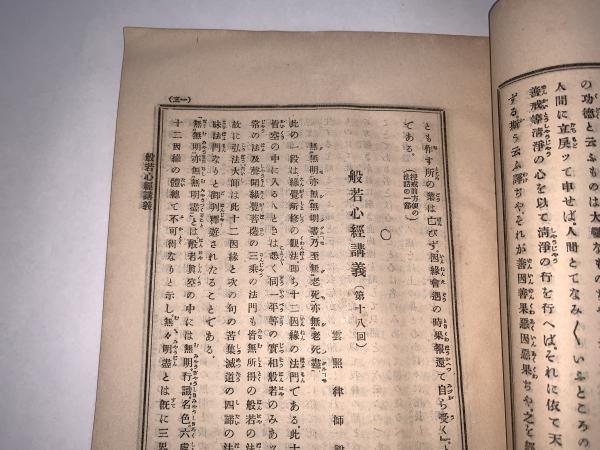 の功徳と云ふものは大
人間に立戻ッて申せば人間とてなみ〱いふところの
善戒等清淨の心を以て清淨の行を行へば、それに依て天
する、斯う云ふ譯ぢや、それが善因善果惡因惡果ぢや、之を
とも作す所の業は亡びず、因緣會遇の時果報還て自ら受く』
である。(授戒前方便の法話の一節)
般若心經講義(第十八回)
雲照律師
無無明亦無無明盡乃至無老死亦無老死盡
此の一段は緣覺所修の觀法即ち十二因緣の法門である、此十
皆空の中に入るへときは悉く同一平等の實相般若のみあッ
常の如法及聲聞緣覺菩薩の三乘の法門も皆無所得の般若の法
故に弘法大師は此十二因緣と次の句の苦集滅道の四諦の法
昧法門なりと御判釋遊されたることである。
無無明亦無無明盡とは般若眞空の中には無明行識名色六處
十二因緣の體總て不可得なりと示し無々明盡とは既に三界
(一三)
般若心經講義